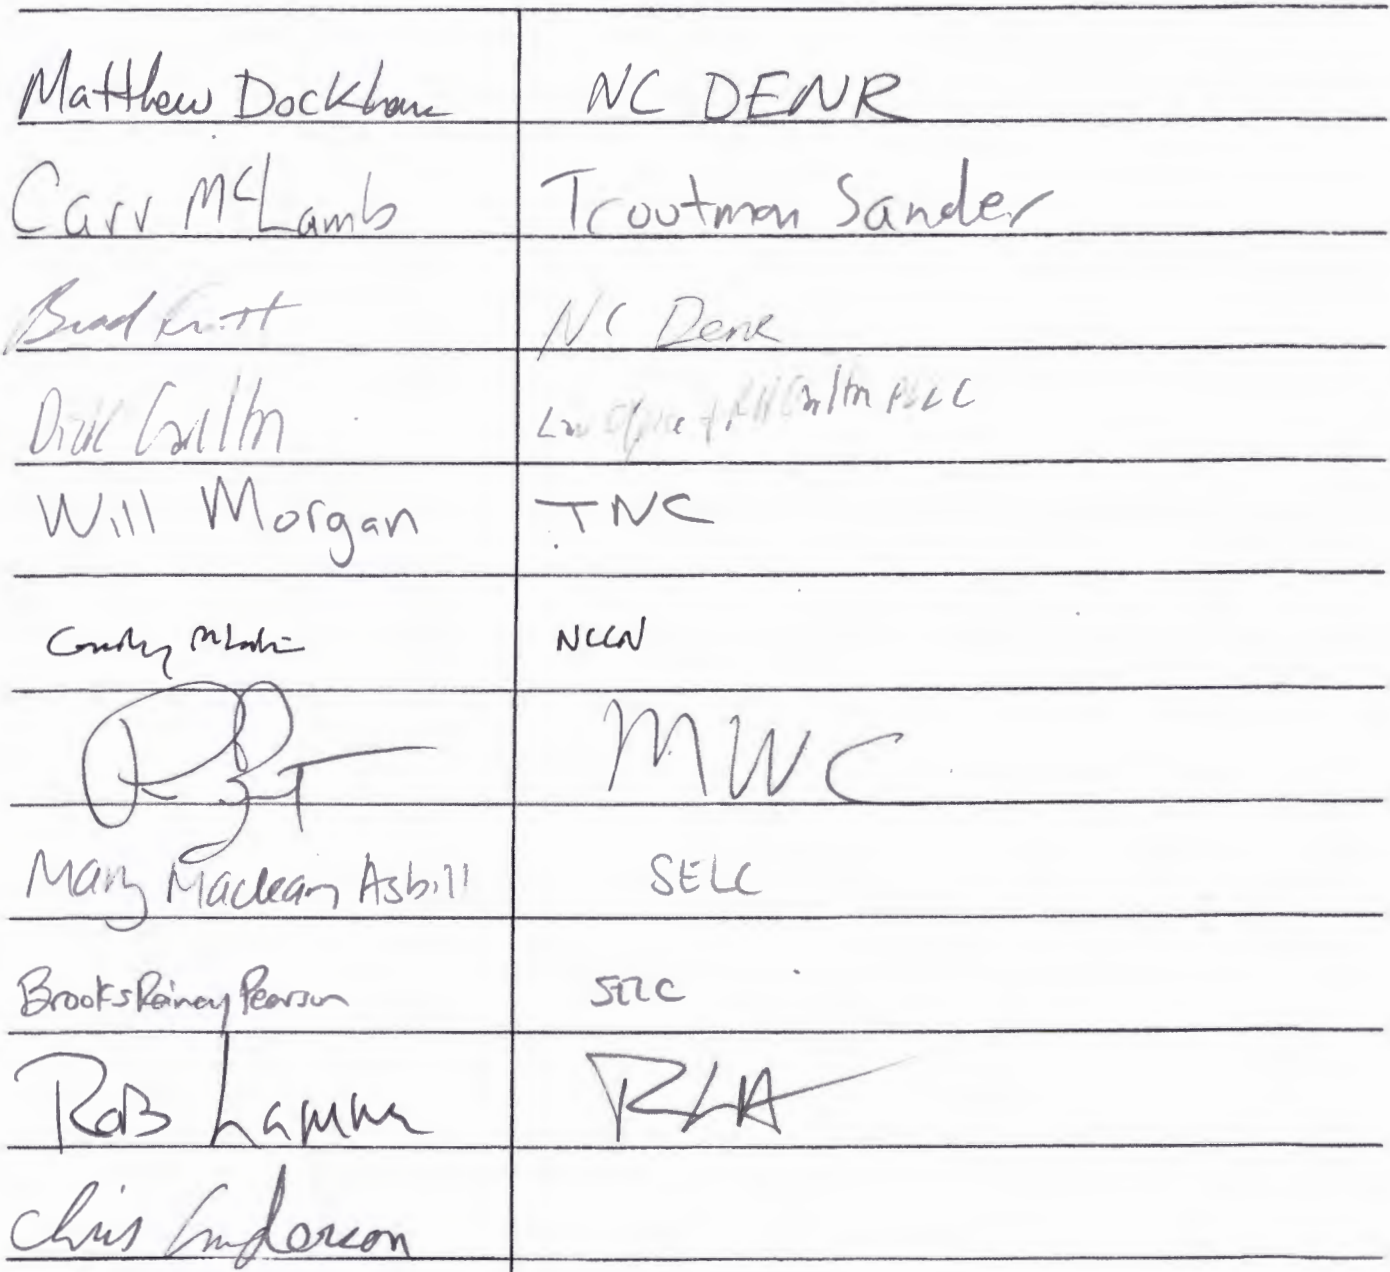 Matthew Dockham NC DENR
Carr McLamb Troutman Sander
Brad NC Denr
Dick Carlton Law Office of Carlton PLLC
Will Morgan TNC
NCCN
MWC
Mary Maclean Asbill SELC
Brooks Rainey Pearson SELC
Rob Lamme RLA
Chris Anderson